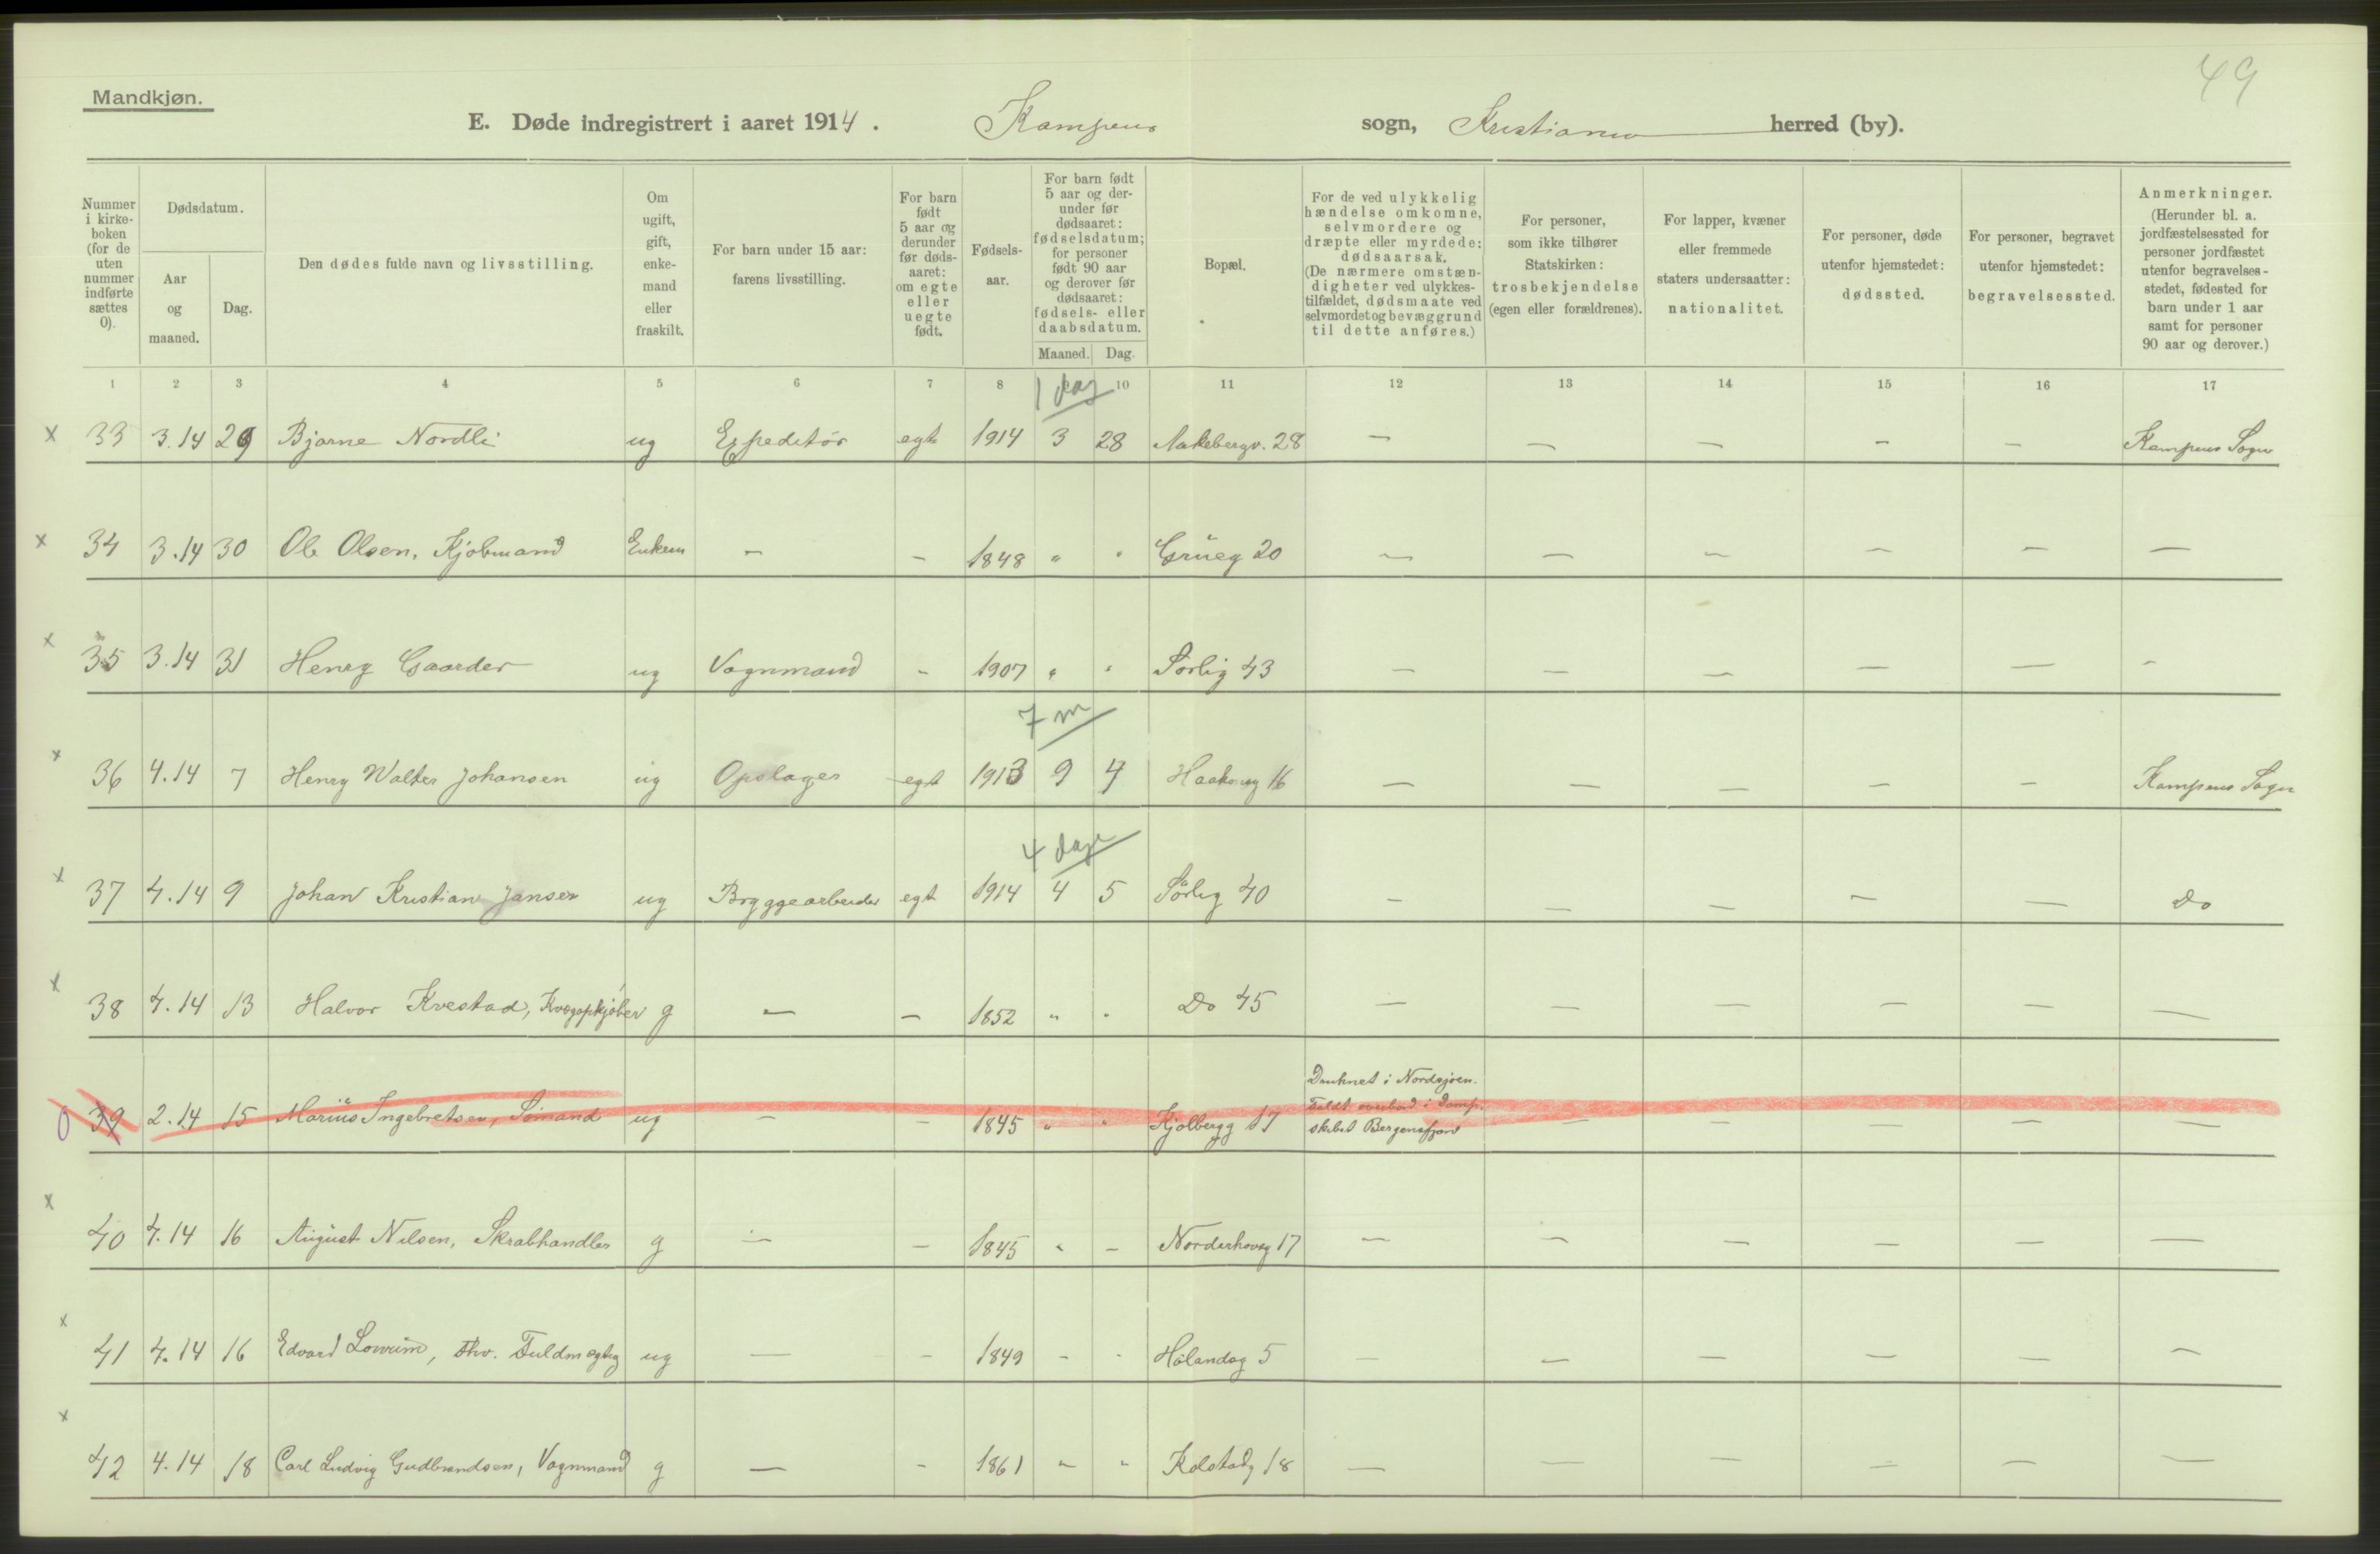 49
Mandkjøn.
E. Døde indregistrert i aaret 1914. Kampens sogn, Kristiania herred (by).
Nummer i kirke-boken (for de uten nummer indførte sættes 0).
Dødsdatum.
Aar og maaned.
Dag.
Den dødes fulde navn og livsstilling.
Om ugift, gift, enke-mand eller fraskilt.
For barn under 15 aar: farens livsstilling.
For barn født 5 aar og derunder før døds-aaret: om egte eller uegte født.
Fødsels-aar.
For barn født 5 aar og der-under før dødsaaret: fødselsdatum; for personer født 90 aar og derover før dødsaaret: fødsels- eller daabsdatum.
Maaned. Dag.
Bopæl.
For de ved ulykkelig hændelse omkomne, selvmordere og dræpte eller myrdede: dødsaarsak. (De nærmere omstæn-digheter ved ulykkes-tilfældet, dødsmaate ved selvmordet og bevæggrund til dette anføres.)
For personer, som ikke tilhører Statskirken: trosbekjendelse (egen eller forældrenes).
For lapper, kvæner eller fremmede staters undersaatter: nationalitet.
For personer, døde utenfor hjemstedet: dødssted.
For personer, begravet utenfor hjemstedet: begravelsessted.
Anmerkninger. (Herunder bl. a. jordfæstelsessted for personer jordfæstet utenfor begravelses-stedet, fødested for barn under 1 aar samt for personer 90 aar og derover.)
1 2 3 4 5 6 7 8 9 10 11 12 13 14 15 16 17
1 dag
x 33 3.14 29 Bjarne Nordli ug Expeditør egte 1914 3 28 Aakebergv. 28 — — — — — Kampens Sogn
x 34 3.14 30 Ole Olsen, Kjøbmand Enkem — — 1848 " " Grüeg 20 — — — — — —
x 35 3.14 31 Henry Gaarder ug Vognmand - 1907 " " Sørlig 43 — — — — — -
7 m
x 36 4.14 7 Henry Walter Johansen ug Opslager egt 1913 9 4 Haakonsg 16 — — — — — Kampens Sogn
4 dage
x 37 4.14 9 Johan Kristian Jansen ug Bryggearbeider egt 1914 4 5 Sørlig 40 — — — — — Do
x 38 4.14 13 Halvor Kvestad, Kvægopkjøber g — — 1852 " " Do 45 — — — — — —
0 39 2.14 15 Marius Ingebretsen, Sømand ug — — 1845 " " Kjølbergg 17 Druknet i Nordsjøen. Faldt overbord i Damp-skibet Bergensfjord — — — — —
x 40 4.14 16 August Nilsen, Skrabhandler g — — 1845 " — Norderhovsg 17 — — — — — —
x 41 4.14 16 Edvard , Fhv. Fuldmægtig ug — — 1849 - - Hølandsg 5 — — — — — —
x 42 4.14 18 Carl Ludvig Gudbrandsen, Vognmand g — - 1861 " " Kolstadg 18 — — — — — —